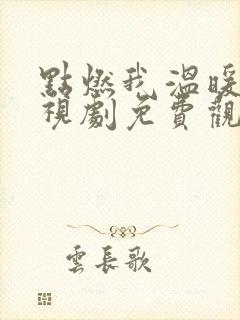 點燃我溫暖
視劇免費觀
雲長歌